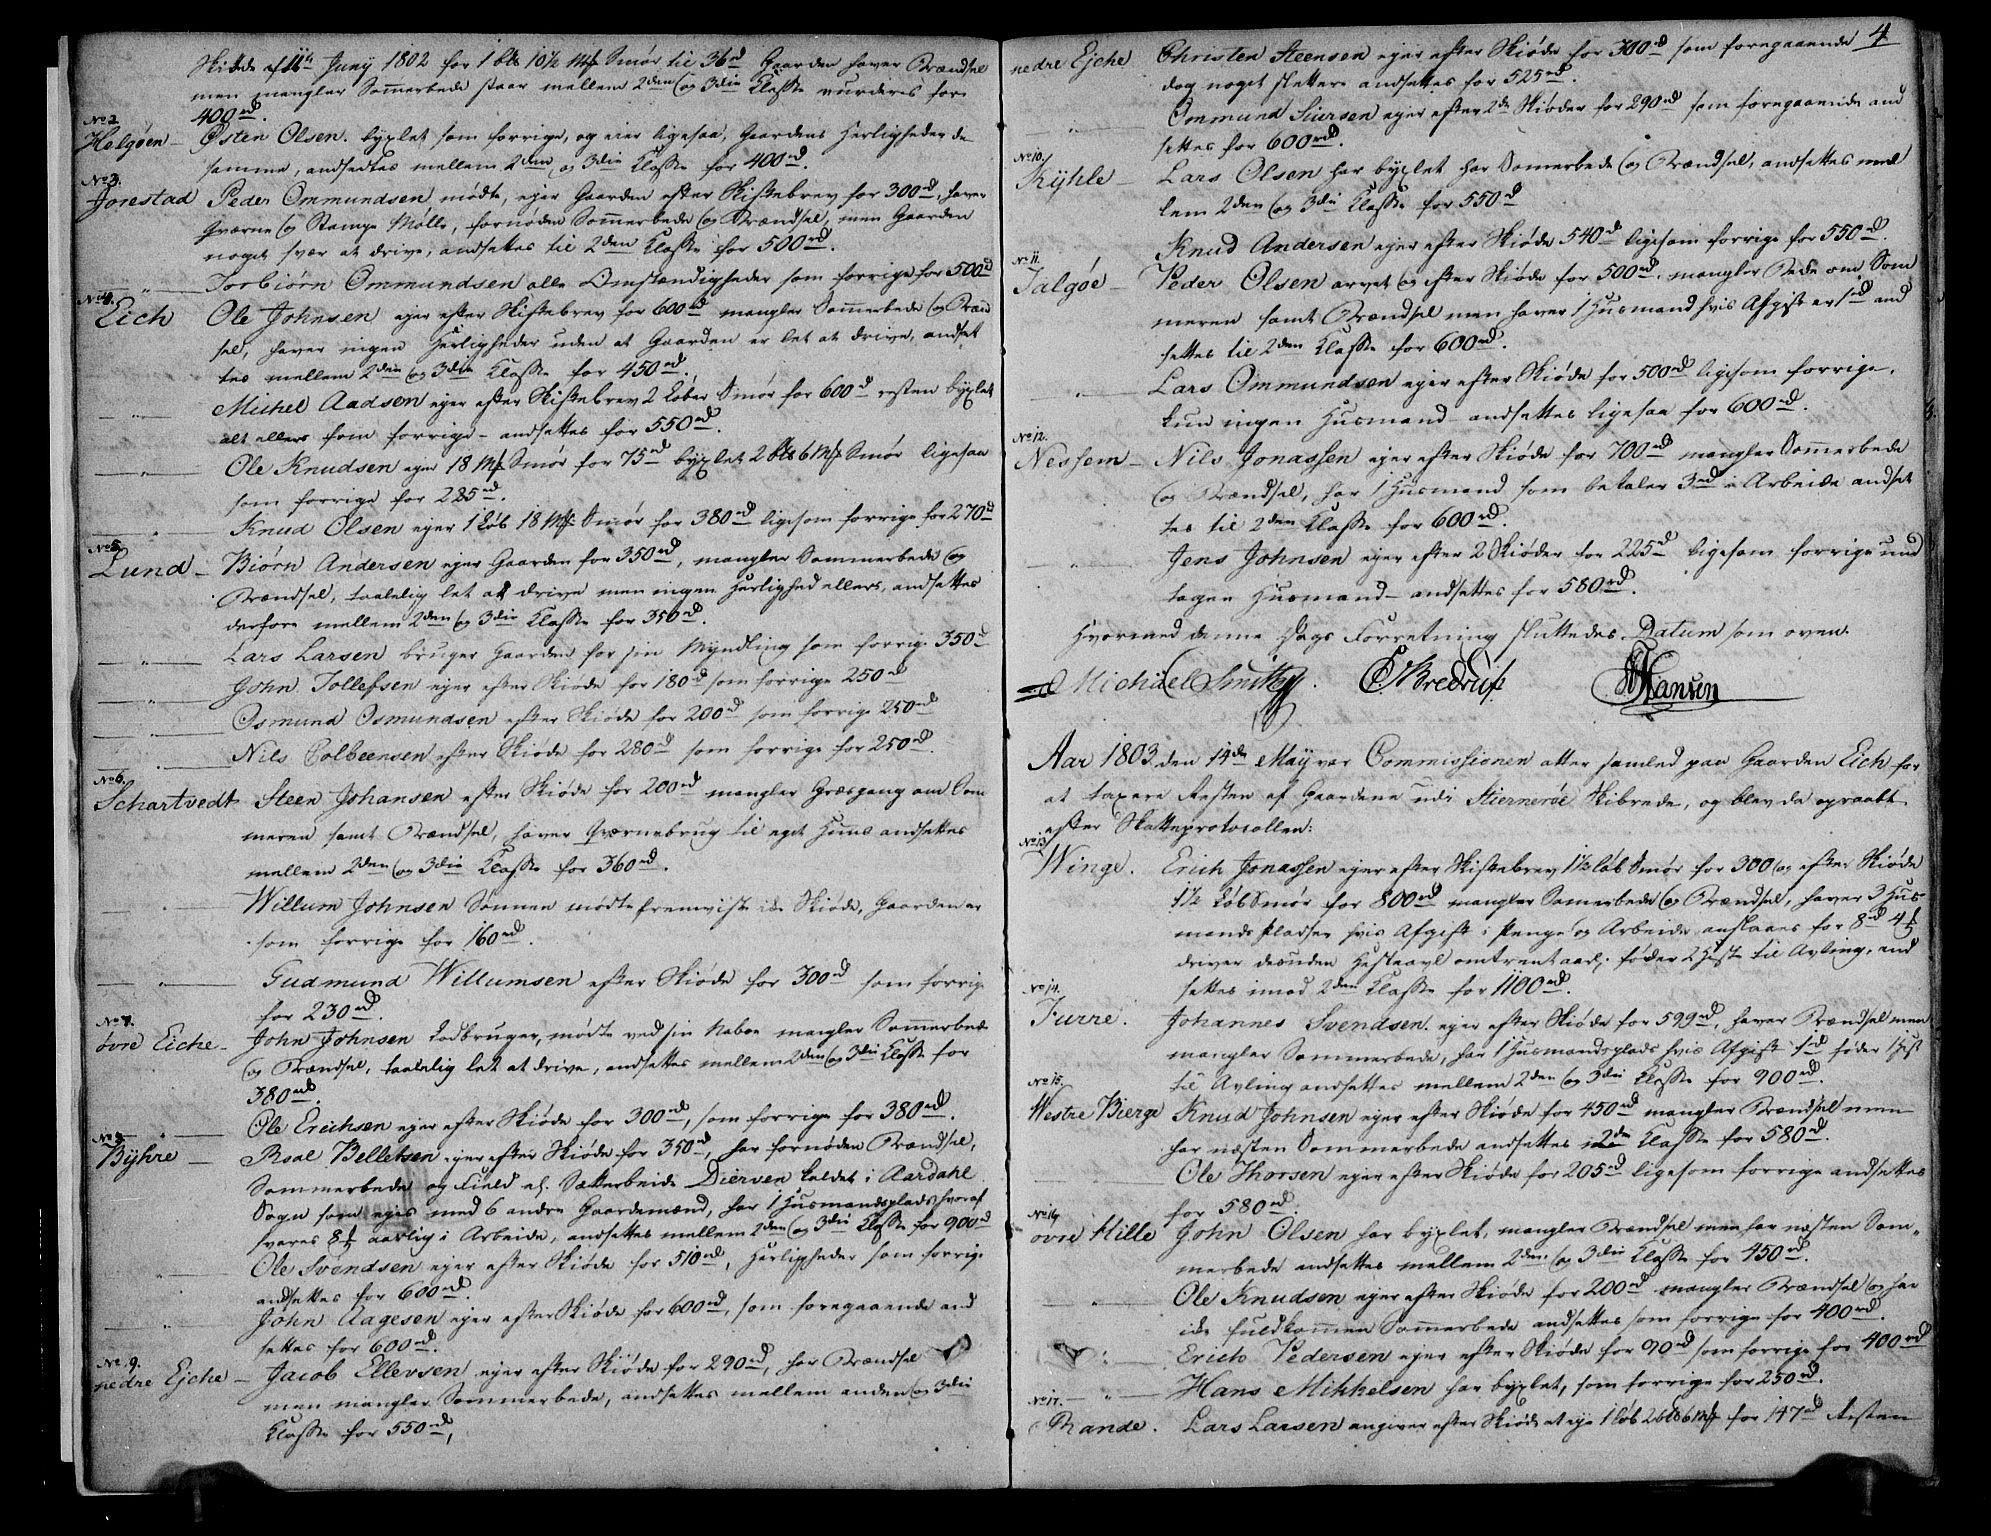 Skiøde af 11te Juny 1802 for 1 bls 10½ Mk Smør til 36rd Gaarden haver Brændsel
men mangler Sommerbede staar mellem 2den og 3die Klasse vurderes for
400rd.
No 2.
Helgøen - Østen Olsen bÿxlet som forrige, og eier ligesaa, Gaardens Herligheder de
samme, andsettes mellem 2den og 3die Klasse for 400rd.
No 3.
Jorestad Peder Ommundsen mødte, ejer Gaarden efter Skiftebrev for 300rd, haver
Qværne og Stampe Mølle, fornøden Sommerbede og Brændsel, men Gaarden
noget svær at drive, andsettes til 2den Klasse for 500rd.
— " — Torbiørn Ommundsen alle Omstændigheder som forrige for 500rd
No 4.
Eich Ole Johnsen ejer efter Skiftebrev for 600rd mangler Sommerbede og Bræn
sel, haver ingen Herligheder uden at Gaarden er let at drive, andset
tes mellem 2den og 3die Klasse for 450rd.
— " — Michel Aadsen ejer efter Skiftebrev 2 Løber Smør for 600rd resten bÿxlet
alt ellers som forrige - andsettes for 550rd.
— " — Ole Knudsen ejer 18 Mk Smør for 75rd bÿxlet 2 bls 6 Mk Smør ligesaa
som forrige for 225rd.
— " — Knud Olsen ejer 1 Løb 18 Mk Smør for 380rd ligesom forrige for 270rd
No 5.
Lund - Biørn Andersen ejer Gaarden for 350rd, mangler Sommerbede og
Brændsel, taalelig let at drive men ingen Herlighed ellers, andsettes
derfore mellem 2den og 3die Klasse for 350rd.
— " — Lars Larsen bruger Gaarden for sin Mÿndling som forrige 350rd
John Tollefsen ejer efter Skiøde for 180rd som forrige 250rd
— " — Osmund Osmundsen efter Skiøde for 200rd som forrige 250rd
— " — Nils Colbeensen efter Skiøde for 280rd som forrige for 250rd.
No 6.
Schartvedt Steen Johansen efter Skiøde for 200rd mangler Græsgang om Som
meren samt Brændsel, haver Qværnebrug til eget Huus andsettes
mellem 2den og 3die Klasse for 360rd.
— " — Willum Johnsen Sønnen mødte fremviste Skiøde, Gaarden er
som forrige for 160rd.
— " — Gudmund Willumsen efter Skiøde for 300rd som forrige
for 230rd.
No 7.
øvre Eiche - John Johnsen Lodbruger, mødte ved sin Naboe mangler Sommerbede
og Brændsel, taalelig let at drive, andsettes mellem 2den og 3die Klasse for
380rd.
— " — Ole Erichsen ejer efter Skiøde for 300rd, som forrige for 380rd.
No 8.
Bÿhre — Roal Belletsen ejer efter Skiøde for 350rd, har fornøden Brændsel,
Sommerbede og Sætterbeide Dierven kaldet i Aardahl
Sogn som ejes med 6 andre Gaardemænd, har 1 Husmandsplads hvoraf
svares 8 aarlig i Arbeide, andsettes mellem 2den og 3die Klasse for 900rd
— " — Ole Svendsen ejer efter Skiøde for 510rd, Herligheder som forrige
andsettes for 600rd.
— " — John Aagesen ejer efter Skiøde for 600rd, som foregaaende and
settes for 600rd.
No 9.
nedre Ejche - Jacob Ellevsen ejer efter Skiøde for 290rd, har Brændsel
men mangler Sommerbede, andsettes mellem anden og 3die
Klasse for 550rd,
4
nedre Ejche Christen Steensen ejer efter Skiøde for 300rd som foregaaende
dog noget slettere andsettes for 525rd.
— " — Ommund Siursen ejer efter 2de Skiøder for 290rd som foregaaende and
settes for 600rd.
No 10.
Kÿhle - Lars Olsen har bÿxlet har Somerbede og Brændsel, andsettes mel
lem 2den og 3die Klasse for 550rd
Knud Andersen ejer efter Skiøde 540rd ligesom forrige for 550rd.
No 11.
Talgøe - Peder Olsen arvet og efter Skiøde for 500rd mangler Bede om Som
meren samt Brændsel men haver 1 Husmand hvis Afgift er 1rd and
settes til 2den Klasse for 600rd.
— " — Lars Ommundsen ejer efter Skiøde for 500rd ligesom forrige,
kun ingen Husmand andsettes ligesaa for 600rd.
No 12.
Nessem - Nils Jonassen ejer efter Skiøde for 700rd mangler Sommerbede
og Brændsel, har 1 Husmand som betaler 3rd i Arbeide andset
tes til 2den Klasse for 600rd.
— " — Jens Johnsen ejer efter 2 Skiøder for 225rd ligesom forrige und
tagen Husmand - andsettes for 580rd.
Hvormed denne Dags Forretning sluttedes Datum som oven.
Michael Smith. Bredrup Hansen
Aar 1803 den 14de Maÿ var Commissionen atter samled paa Gaarden Eich for
at taxere Resten af Gaardene udi Stiernerøe Skibrede, og blev da opraabt
efter Skatteprotocollen:
No 13
Winge. Erich Jonassen ejer efter Skiftebrev 1½ Løb Smør for 300 og efter Skiøde
1½ Løb Smør for 800rd mangler Somerbede og Brændsel, haver 3 Huus
mands Pladser hvis Afgift i Penge og Arbeide anslaaes for 8rd 4
driver desuden Hesteavl omtrent aarl. føder 2 Hest til Avling, and
settes imod 2den Klasse for 1100rd.
No 14.
Furre. Johannes Svendsen ejer efter Skiøde for 599rd, haver Brændsel men
mangler Sommerbede, har 1 Husmandsplads hvis Afgift 1rd føder 1 Hest
til Avling andsettes mellem 2den og 3die Klasse for 900rd.
No 15.
Westre Bierge Knud Johnsen ejer efter Skiøde for 450rd mangler Brændsel men
har næsten Sommerbede andsettes i 2den Klasse for 580rd.
Ole Thorsen ejer efter Skiøde for 205rd ligesom forrige andsettes
for 580rd.
No 16
øvre Hille John Olsen har bÿxlet, mangler Brændsel men har næsten Som„
merbede andsettes mellem 2den og 3die Klasse for 450rd.
— " — Ole Knudsen ejer efter Skiøde for 200rd mangler Brændsel og har
ikke fuldkommen Sommerbede andsettes som forrige for 400rd.
— " — Erich Pedersen ejer efter Skiøde for 90rd som forrige for 400rd
— " — Hans Mikkelsen har bÿxlet, som forrige for 250rd.
No 17.
Rande. Lars Larsen angiver efter Skiøde at eje 1 Løb 2 bls 6 Mk for 147rd Resten